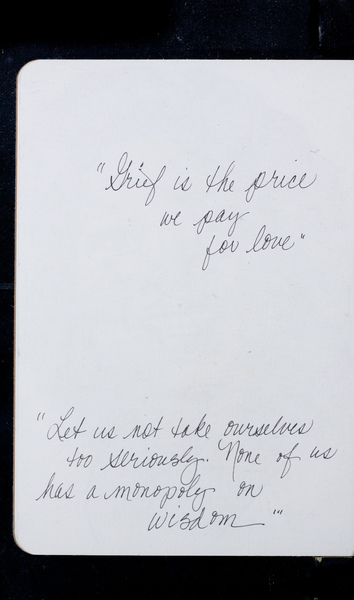 "Grief is the price
we pay
for love"
"Let us not take ourselves
too seriously. None of us
has a monopoly on
wisdom"'